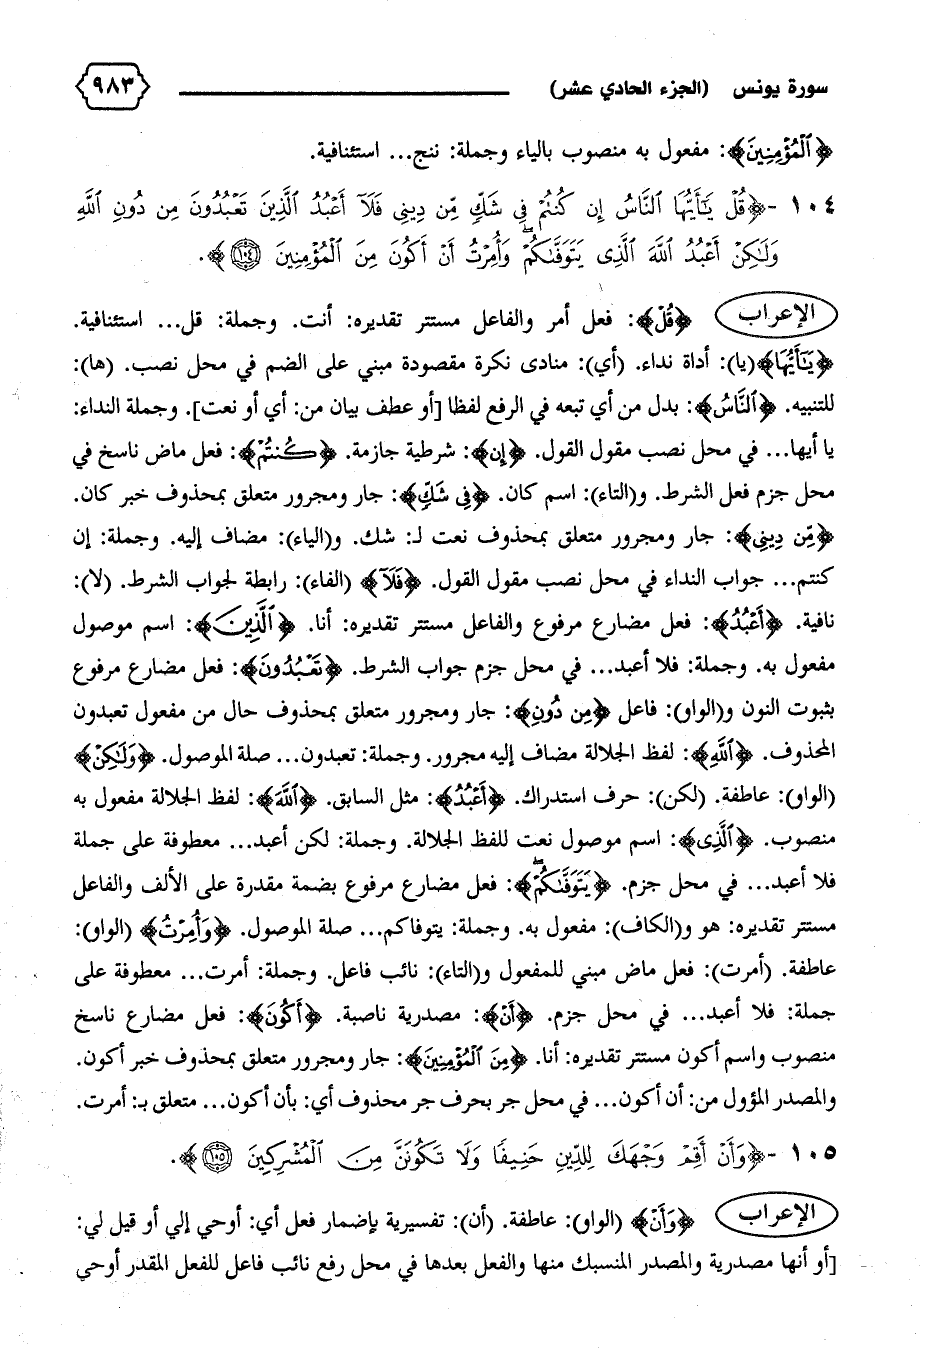 سورة يونس (الجزء الحادي عشر) ٩٨٣
﴿ٱلْمُؤْمِنِينَ﴾: مفعول به منصوب بالياء وجملة: ننج... استئنافية.
١٠٤ - ﴿قُلْ يَٰٓأَيُّهَا ٱلنَّاسُ إِن كُنتُمْ فِى شَكٍّ مِّن دِينِى فَلَآ أَعْبُدُ ٱلَّذِينَ تَعْبُدُونَ مِن دُونِ ٱللَّهِ
وَلَٰكِنْ أَعْبُدُ ٱللَّهَ ٱلَّذِى يَتَوَفَّىٰكُمْ ۖ وَأُمِرْتُ أَنْ أَكُونَ مِنَ ٱلْمُؤْمِنِينَ ۝١٠٤﴾.
الإعراب ﴿قُلْ﴾: فعل أمر والفاعل مستتر تقديره: أنت. وجملة: قل... استئنافية.
﴿يَٰٓأَيُّهَا﴾ (يا): أداة نداء. (أي): منادى نكرة مقصودة مبني على الضم في محل نصب. (ها):
للتنبيه. ﴿ٱلنَّاسُ﴾: بدل من أي تبعه في الرفع لفظا [أو عطف بيان من: أي أو نعت]. وجملة النداء:
يا أيها... في محل نصب مقول القول. ﴿إِن﴾: شرطية جازمة. ﴿كُنتُمْ﴾: فعل ماض ناسخ في
محل جزم فعل الشرط. و(التاء): اسم كان. ﴿فِى شَكٍّ﴾: جار ومجرور متعلق بمحذوف خبر كان.
﴿مِّن دِينِى﴾: جار ومجرور متعلق بمحذوف نعت لـ: شك. و(الياء): مضاف إليه. وجملة: إن
كنتم... جواب النداء في محل نصب مقول القول. ﴿فَلَآ﴾ (الفاء): رابطة لجواب الشرط. (لا):
نافية. ﴿أَعْبُدُ﴾: فعل مضارع مرفوع والفاعل مستتر تقديره: أنا. ﴿ٱلَّذِينَ﴾: اسم موصول
مفعول به. وجملة: فلا أعبد... في محل جزم جواب الشرط. ﴿تَعْبُدُونَ﴾: فعل مضارع مرفوع
بثبوت النون و(الواو): فاعل ﴿مِن دُونِ﴾: جار ومجرور متعلق بمحذوف حال من مفعول تعبدون
المحذوف. ﴿ٱللَّهِ﴾: لفظ الجلالة مضاف إليه مجرور. وجملة: تعبدون... صلة الموصول. ﴿وَلَٰكِنْ﴾
(الواو): عاطفة. (لكن): حرف استدراك. ﴿أَعْبُدُ﴾: مثل السابق. ﴿ٱللَّهَ﴾: لفظ الجلالة مفعول به
منصوب. ﴿ٱلَّذِى﴾: اسم موصول نعت للفظ الجلالة. وجملة: لكن أعبد... معطوفة على جملة
فلا أعبد... في محل جزم. ﴿يَتَوَفَّىٰكُمْ ۖ﴾: فعل مضارع مرفوع بضمة مقدرة على الألف والفاعل
مستتر تقديره: هو و(الكاف): مفعول به. وجملة: يتوفاكم... صلة الموصول. ﴿وَأُمِرْتُ﴾ (الواو):
عاطفة. (أمرت): فعل ماض مبني للمفعول و(التاء): نائب فاعل. وجملة: أمرت... معطوفة على
جملة: فلا أعبد... في محل جزم. ﴿أَنْ﴾: مصدرية ناصبة. ﴿أَكُونَ﴾: فعل مضارع ناسخ
منصوب واسم أكون مستتر تقديره: أنا. ﴿مِنَ ٱلْمُؤْمِنِينَ﴾: جار ومجرور متعلق بمحذوف خبر أكون.
والمصدر المؤول من: أن أكون... في محل جر بحرف جر محذوف أي: بأن أكون... متعلق بـ: أمرت.
١٠٥ - ﴿وَأَنْ أَقِمْ وَجْهَكَ لِلدِّينِ حَنِيفًا وَلَا تَكُونَنَّ مِنَ ٱلْمُشْرِكِينَ ۝١٠٥﴾.
الإعراب ﴿وَأَنْ﴾ (الواو): عاطفة. (أن): تفسيرية بإضمار فعل أي: أوحي إلي أو قيل لي:
[أو أنها مصدرية والمصدر المنسبك منها والفعل بعدها في محل رفع نائب فاعل للفعل المقدر أوحي